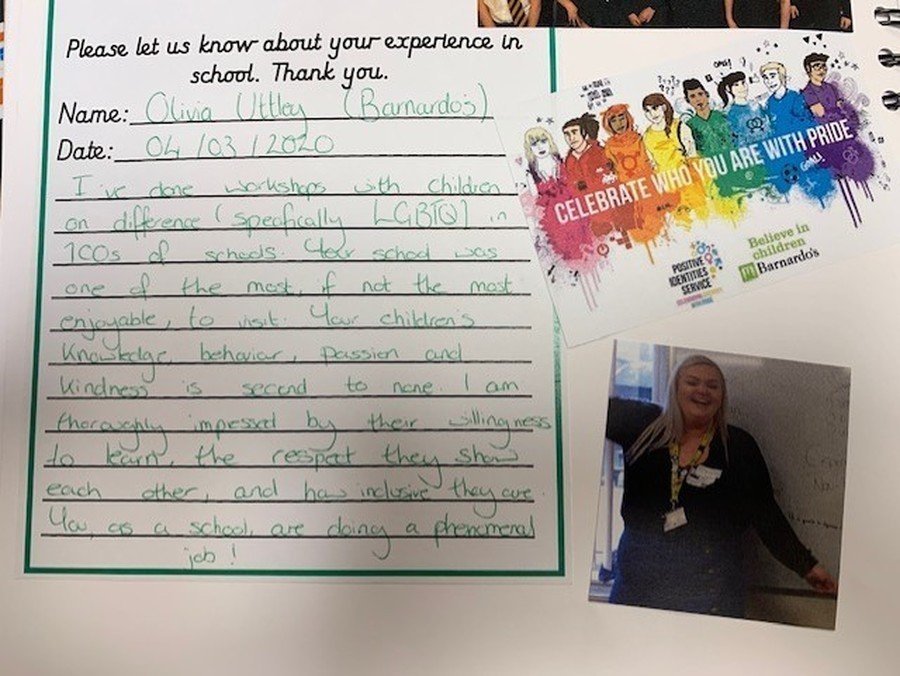 Please let us know about your experience in
school. Thank you.
Name: Olivia Uttley (Barnardo's)
Date: 04/03/2020
I've done workshops with children
on difference (specifically LGBTQ) in
100s of schools. Your school was
one of the most, if not the most
enjoyable, to visit. Your children's
knowledge, behaviour, passion and
kindness is second to none. I am
thoroughly impressed by their willingness
to learn, the respect they show
each other, and how inclusive they are.
You, as a school, are doing a phenomenal
job!
CELEBRATE WHO YOU ARE WITH PRIDE
POSITIVE
IDENTITIES
SERVICE
Believe in
children
Barnardo's